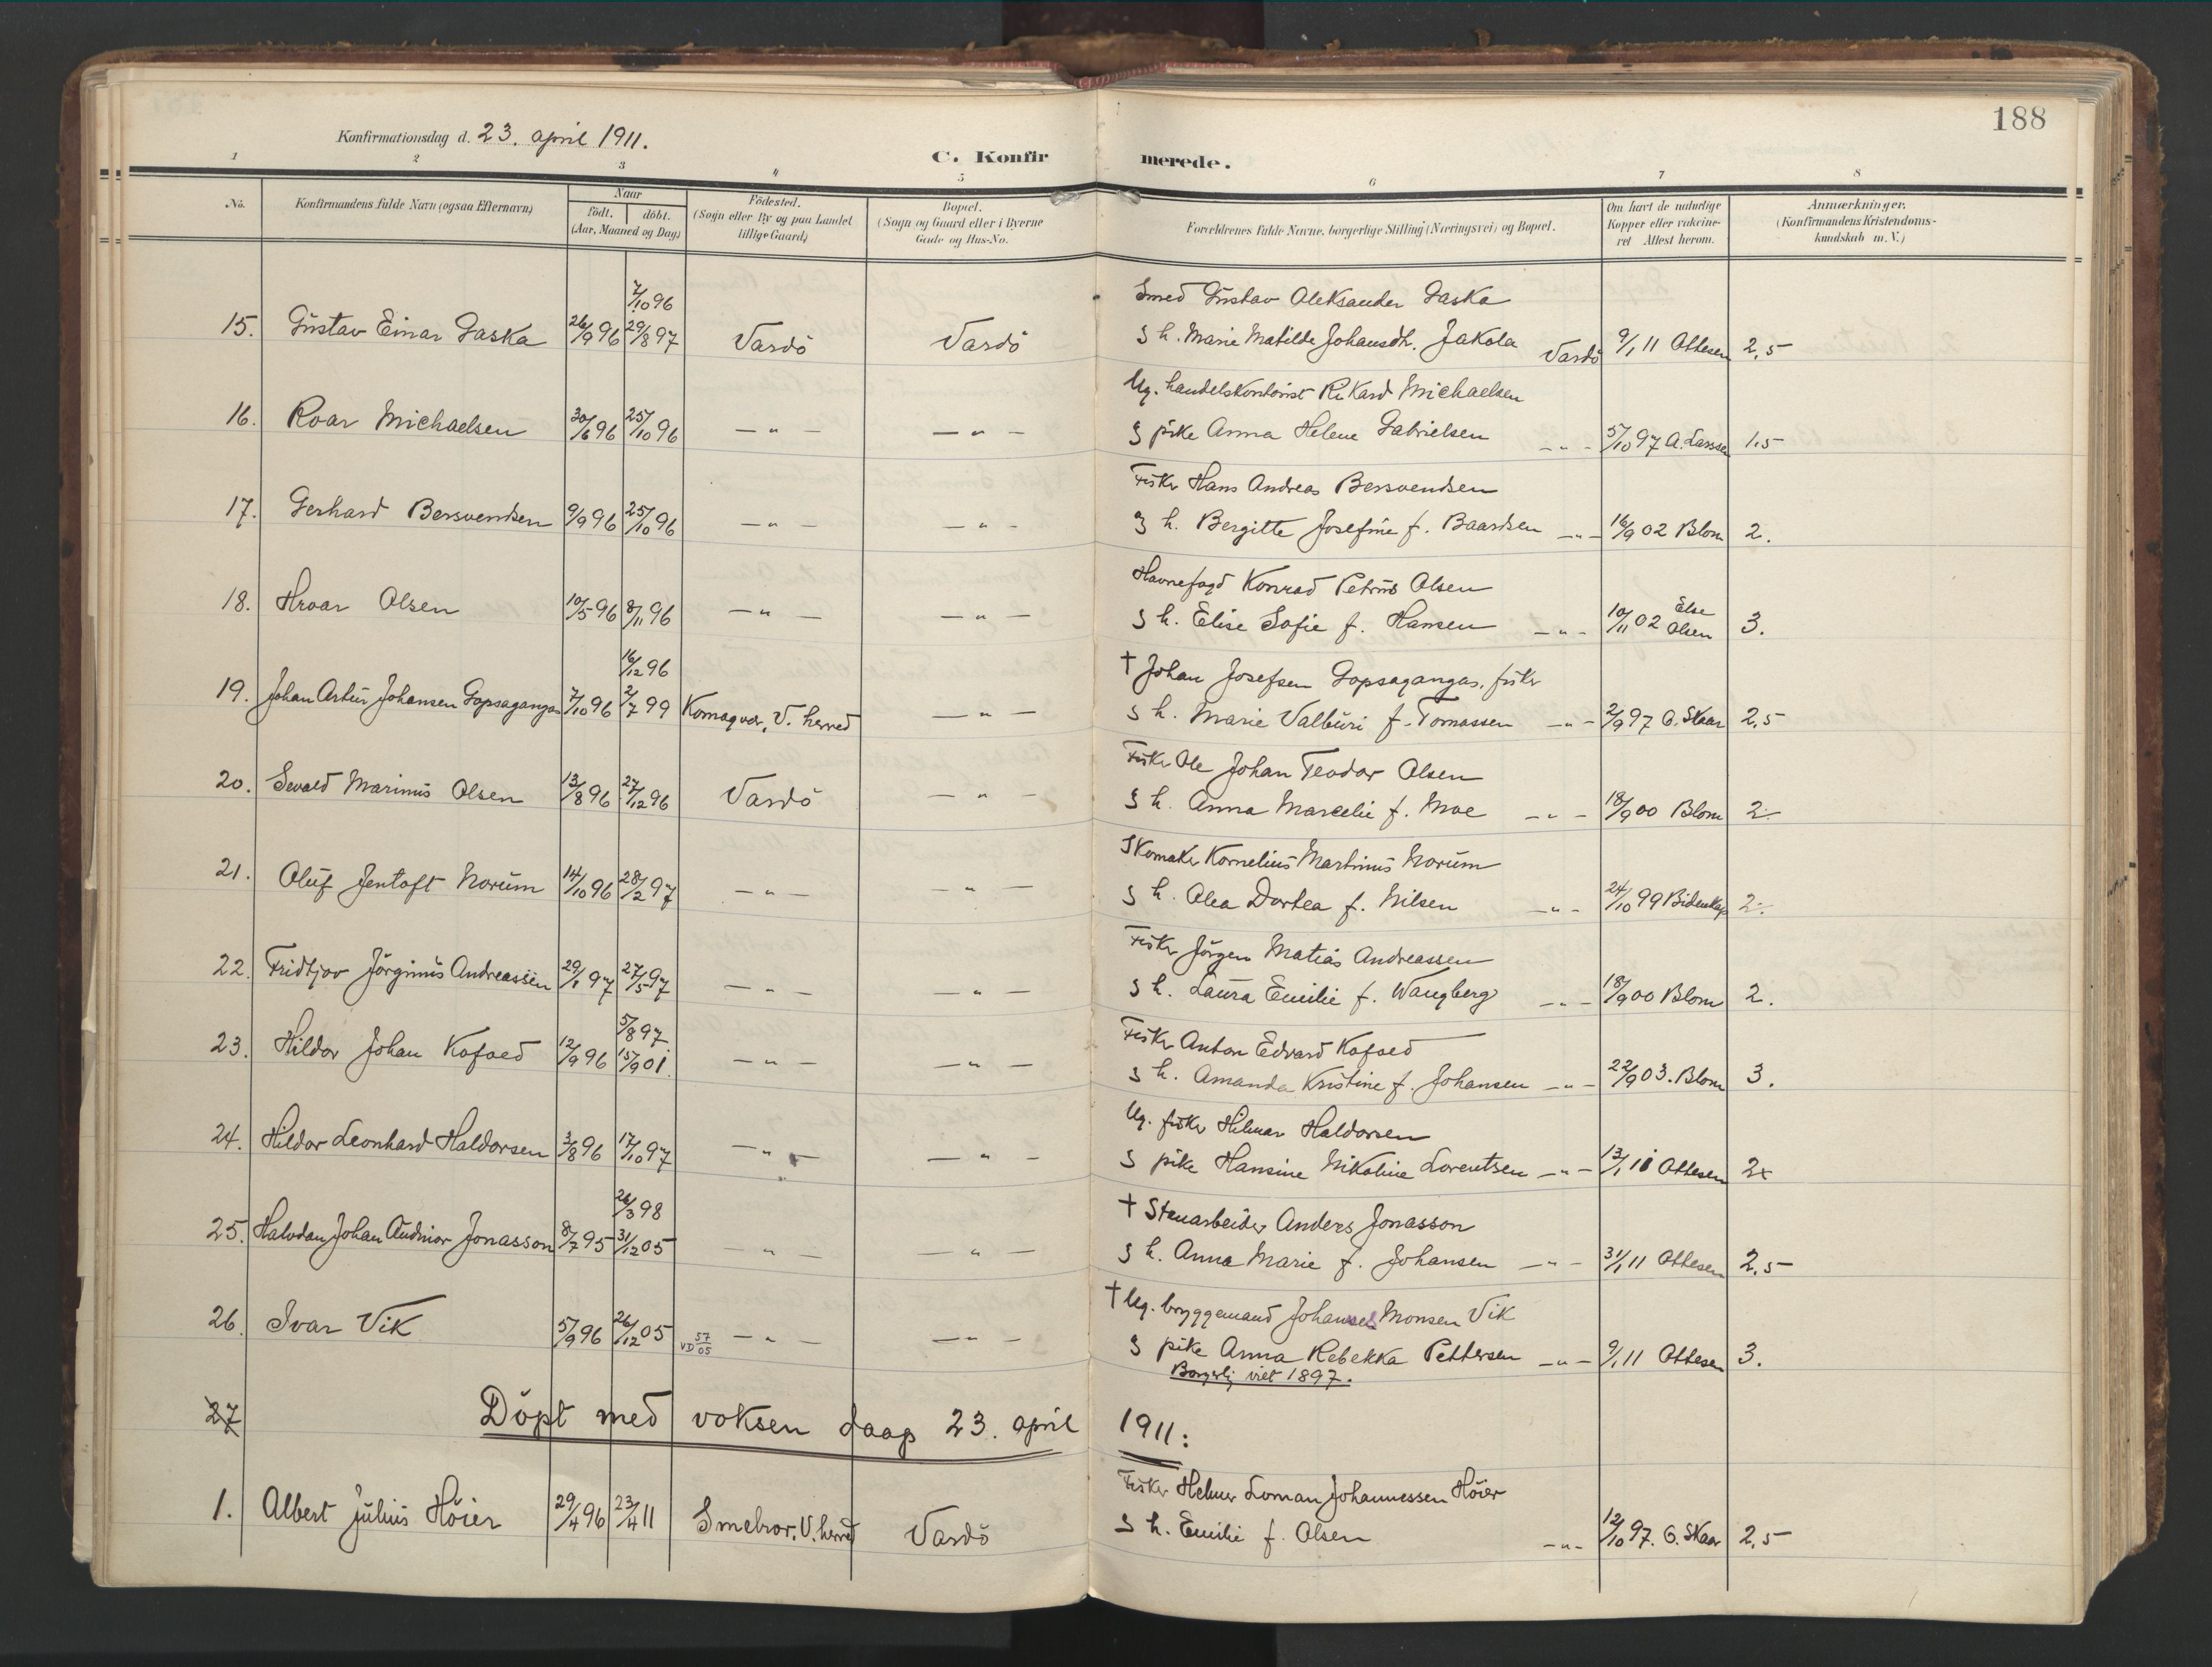 188
Konfirmationsdag d. 23. april 1911.
C. Konfirmerede.
1 2 3 4 5 6 7 8
No. Konfirmandens fulde Navn (ogsaa Efternavn) Naar födt. döbt. (Aar, Maaned og Dag) Födested. (Sogn eller By og paa Landet tillige Gaard) Bopæl. (Sogn og Gaard eller i Byerne Gade og Hus-No. Forældrenes fulde Navne, borgerlige Stilling (Næringsvei) og Bopæl. Om havt de naturlige Kopper eller vakcineret Attest herom. Anmærkninger. (Konfirmandens Kristendomskundskab m. V.)
7/10 96 Smed Gustav Aleksander Gaska
15. Gustav Einar Gaska 26/9 96 29/8 97 Vardö Vardö g h. Marie Matilde Johansdh. Jakola Vardö 9/1 11 Ottesen 2,5
Ug. handelskontorist Rikard Michaelsen
16. Roar Michaelsen 30/6 96 25/10 96 — " — — " — g pike Anna Helene Gabrielsen — " — 5/10 97 A. Larssen 1.5
Fisker Hans Andreas Bersvendsen
17. Gerhard Bersvendsen 9/9 96 25/10 96 — " — — " — g h. Bergitte Josefine f. Baardsen — " — 16/9 02 Blom 2.
Havnefogd Konrad Petrus Olsen
18. Hroar Olsen 10/5 96 8/11 96 — " — — " — g h. Elise Sofie f. Hansen — " — 10/11 02 Else Olsen 3.
16/12 96 † Johan Josefsen Gapsagangas, fisker
19. Johan Artur Johansen Gapsagangas 7/10 96 2/7 99 Komagvær, V. herred — " — g h. Marie Valburi f. Tomassen — " — 2/9 97 O. Skaar 2,5
Fisker Ole Johan Teodor Olsen
20. Sevald Marinus Olsen 13/8 96 27/12 96 Vardö — " — g h. Anna Marcelie f. Moe — " — 18/9 00 Blom 2
Skomaker Kornelius Martinus Norum
21. Oluf Jentoft Norum 14/10 96 28/2 97 — " — — " — g h. Olea Dortea f. Nilsen — " — 24/10 99 Bidenkap 2
Fisker Jörgen Matias Andreassen
22. Fridtjov Jörginus Andreassen 29/1 97 27/5 97 — " — — " — g h. Laura Emilie f. Wangberg — " — 18/9 00 Blom 2.
5/8 97 Fisker Anton Edvard Kofoed
23. Hildor Johan Kofoed 12/9 96 15/9 01. — " — — " — g h. Amanda Kristine f. Johansen — " — 22/9 03. Blom 3.
Ug. fisker Hilmar Haldorsen
24. Hildor Leonhard Haldorsen 3/8 96 17/10 97 — " — — " — g pike Hansine Nikoline Lorentsen — " — 13/1 11 Ottesen 2
26/3 98 † Stenarbeider Anders Jonasson
25. Halvdan Johan Audnior Jonasson 8/7 95 31/12 05 — " — — " — g h. Anna Marie f. Johansen — " — 31/1 11 Ottesen 2,5
† Ug. bryggemand Monsen Vik
26. Ivar Vik 5/9 96 26/12 05 VD 57/05 — " — — " — g pike Anna Rebekka Pettersen — " — 9/1 11 Ottesen 3.
Borgerlig viet 1897.
27 Döpt med voksen daap 23. april 1911:
Fisker Helmer Loman Johannessen Höier
1. Albert Julius Höier 29/4 96 23/4 11 Smelror, V. herred Vardö g h. Emilie f. Olsen — " — 12/10 97. O. Skaar 2,5